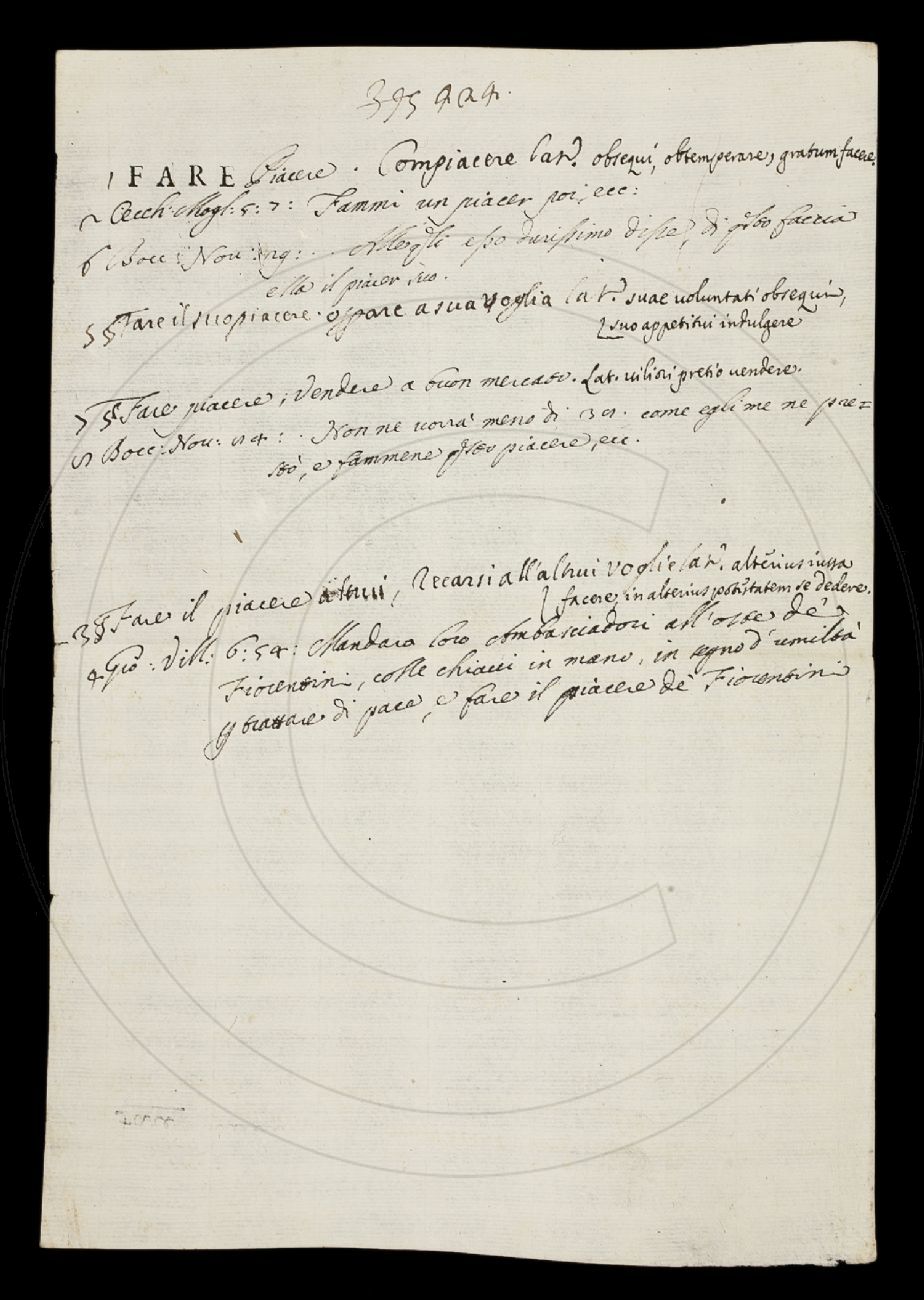 395 424.
1 FARE Piacere. Compiacere lat. obsequi, obtemperare, gratum facere.
2 Cecch: Mogl: 5: 7: Fammi un piacer poi, ecc:
6 Bocc: Nov: : . . esso durissimo disse, di qsto faccia
ella il piacer suo.
5 § Fare il suo piacere. oprare a sua voglia lat. suae voluntati obsequi,
suo appetitui indulgere
7 § Fare piacere, Vendere a buon mercato. Lat. viliori pretio vendere.
Bocc: Nov: : . Non ne vorrà meno di come egli me ne pre=
stò, e fammene qsto piacere, ecc.
3 § Fare il piacere altrui, Recarsi all'altrui voglie lat. alterius iussa
facere, in alterius potestatem se dedere.
4 Gio: Vill: 6: 54: Mandaro loro Ambasciadori all'oste de'
Fiorentini, colle chiavi in mano, in segno d'umiltà
p trattare di pace, e fare il piacere de' Fiorentini